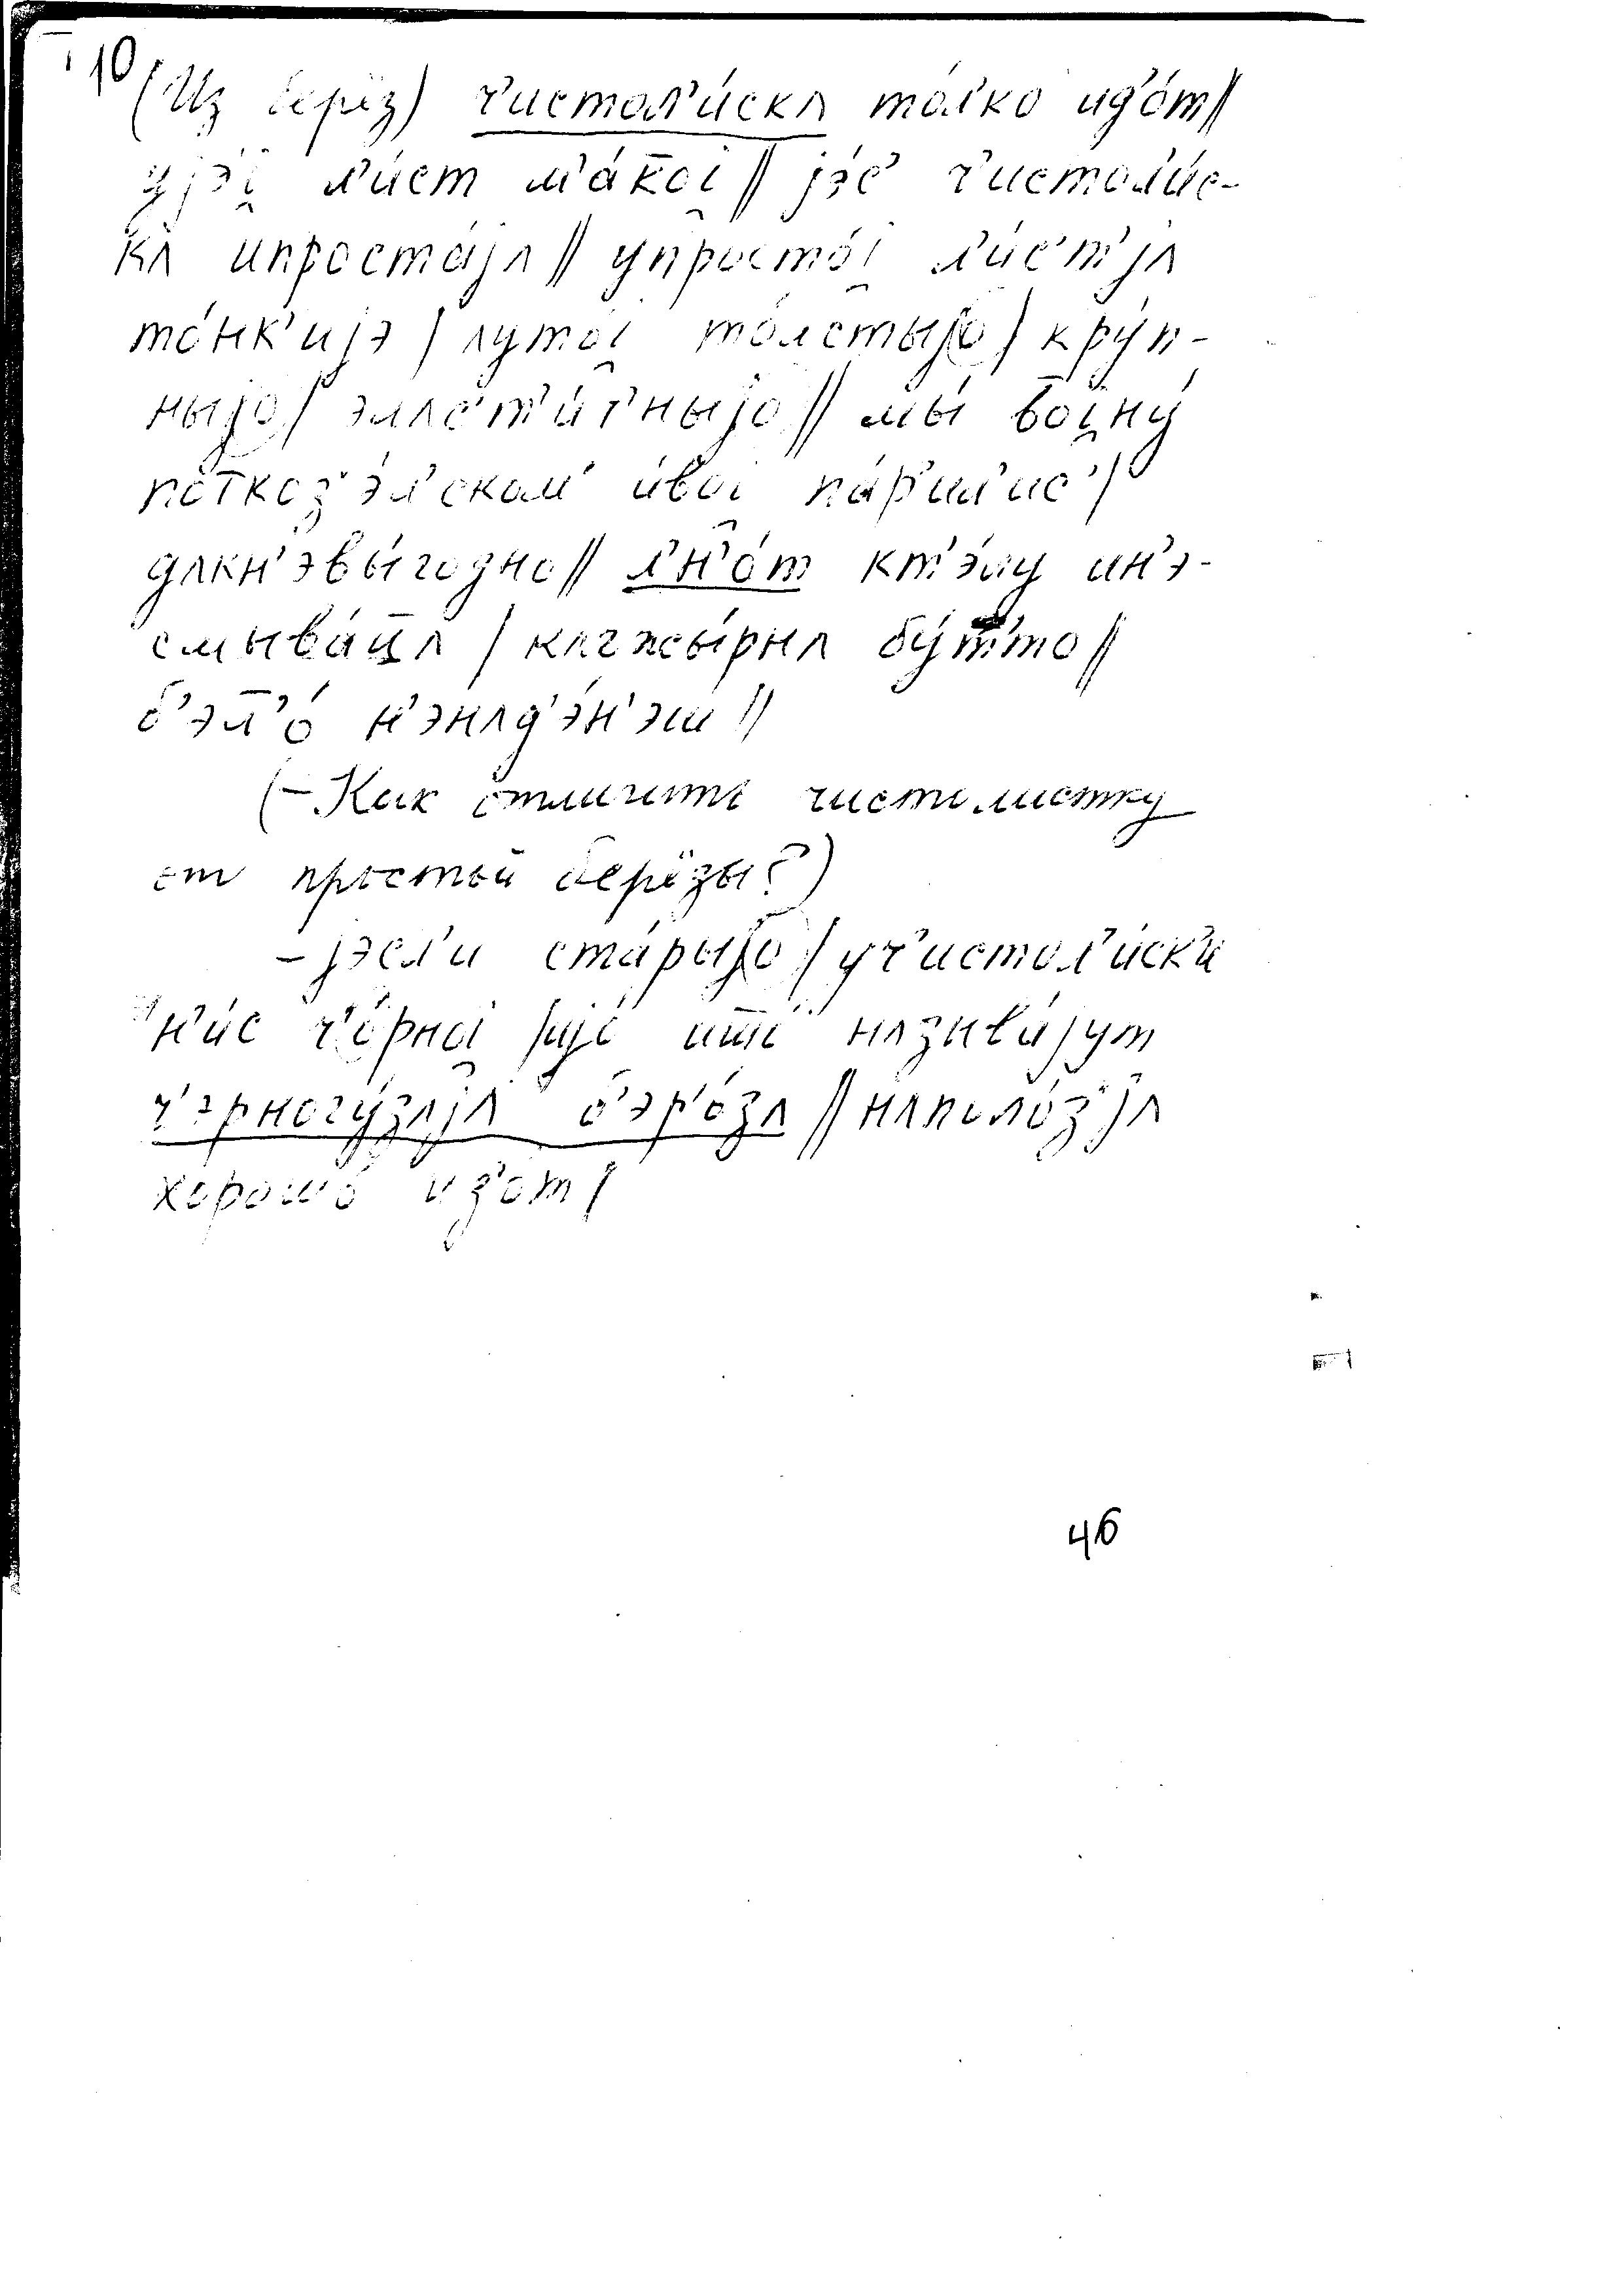 10
(Из берёз) ч'истол'и́скʌ то́л'ко ид'о́т//
у jэ́i̯ л'и́ст м'а́к̄оi̯ // jэ́с' ч'истол'и́с-
кʌ ипроста́jʌ // упросто́i̯ л'и́с'т'jʌ
то́нк'иjэ / ʌуто́i̯ то́лстыjо / кру́п-
ныjо / элʌс'т'и́ч'ныjо // мы́ воi̯ну́
поткоз'э́л'ском и́воi̯ па́р'ил'ис' /
дʌкн'эвы́годно // л'н'о́т кт'э́лу ин'э-
смыва́йц̄ʌ / кʌгжы́рнʌ бу́т̄то //
б'эл̄'о́ н'энʌд'э́н'эш //
(– Как отличить чистолистку
от простой берёзы?)
– jэсл'и ста́рыjо / уч'истол'и́ск'и
н'и́с ч'о́рноi̯ /
нʌзыва́jут
ч'эрногу́зʌjʌ б'эр'о́зʌ // нʌполо́з'jʌ
хорошо́ ид'о́т /
46